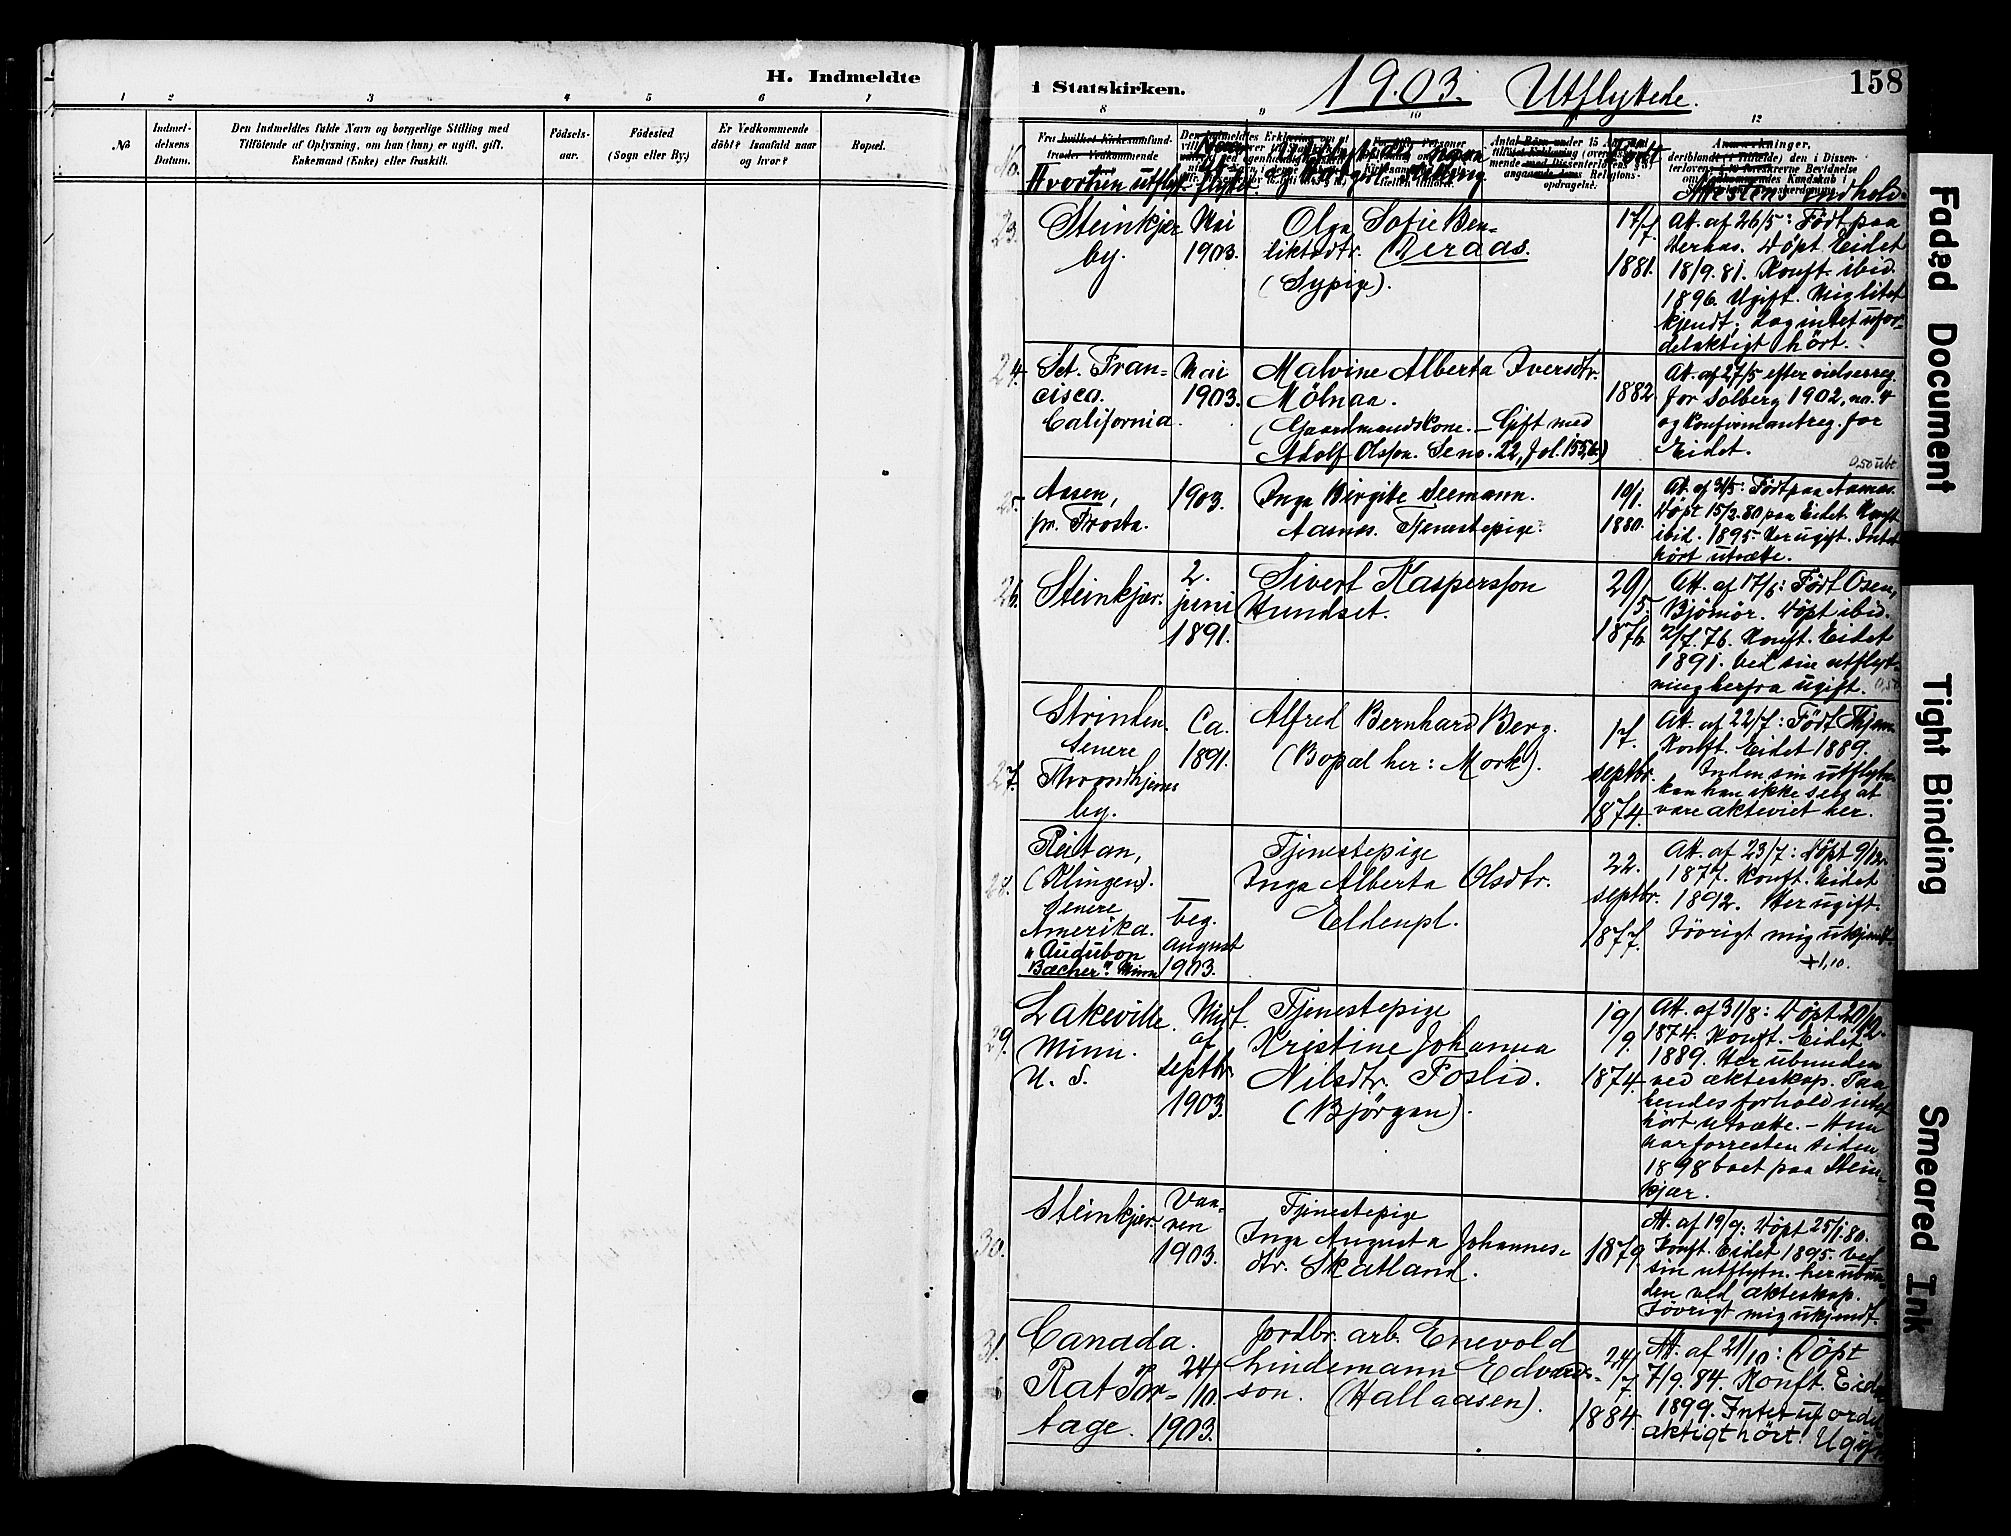 H. Indmeldte
1 2 3 4 5 6 7
No
Indmel-
delsens
Datum.
Den Indmeldtes fulde Navn og borgerlige Stilling med
Tilföiende af Oplysning, om han (hun) er ugift, gift,
Enkemand (Enke) eller fraskilt.
Födsels-
aar.
Födested
(Sogn eller By.)
Er Vedkommende
döbt? Isaafald naar
og hvor?
Bopæl.
i Statskirken.
1903. Utflyttede.
158
8 9 10 12
No.
Hvorhen utflyt.
Attestens indhold.
23.
Steinkjær
by.
Mai
1903.
Olga Sofie Ben-
diktsdtr. Veraas.
(Sypige).
17/7.
1881.
Att. af 26/5: Født paa
Veraas. Døpt Eidet
18/9.81. Konft. ibid.
1896. Ugift. Mig litet
kjendt; dog intet ufor-
delaktigt hört.
24.
Sct. Fran-
cisco.
California.
Mai
1903.
Malvine Alberta Iversdtr.
Mölnaa.
(Gaardmandskone. – Gift med
Adolf Olsson. Se no. 22, fol. 155,b)
1882.
Att. af 27/5 efter vielsesreg.
for Solberg 1902, no. 4
og konfirmantreg. for
Eidet.
25.
Aasen,
pr. Frosta.
1903.
Inga Birgite Seemann.
Aasnes. Tjenestepige.
19/1
1880.
Att. af 31/5: Født paa Aasnes.
Döpt 15/2.80 paa Eidet. Konft.
ibid. 1895. Her ugift. Intet
hört utsætte.
0.50 ubt
26.
Steinkjær.
2.
juni
1891.
Sivert Kaspersson
Hundset.
29/5.
1876.
Att. af 17/6: Født Osen,
Bjömör. Döpt ibid.
2/7.76. Konft. Eidet
1891. Ved sin utflyt-
ning herfra ugift.
27.
Strinden.
Senere
Throndhjems
by.
Ca.
1891.
Alfred Bernhard Berg.
(Bopæl her: Mork).
17.
septbr.
1874.
Att. af 22/7: Født
Konft. Eidet 1889.
Inden sin utflytn.
kan han ikke sees at
være akteviet her.
28.
Reitan,
(Klingen).
Senere
Amerika.
"Audubon
Bæcher". Minn
beg.
august
1903.
Tjenestepige
Inga Alberta Olsdtr.
Eldenpl.
22.
septbr.
1877.
Att. af 23/7: Döpt 9/12.
1877. Konft. Eidet
1892. Her ugift.
Iövrigt mig ukjendt.
+1,10.
29.
Lakeville.
Minn.
U. S.
Midt.
af
septbr.
1903.
Tjenestepige
Kristine Johanna
Nilsdtr. Foslid.
(Björgan).
19/
9.
1874.
Att. af 31/8: Döpt 20/12.
1874. Konft. Eidet
1889. Her ubunden
ved ækteskap. Paa
hendes forhold intet
hört utsætte. – Hun
har forresten siden
1898 boet paa Stein-
kjær.
30.
Steinkjær.
Vaa-
ren
1903.
Tjenestepige
Inga Augusta Johannes-
dtr. Skatland.
1879.
Att. af 19/9: Döpt 25/1.80.
Konft. Eidet 1895. Ved
sin utflytn. her ubun-
den ved ækteskap.
Iövrigt mig ukjendt.
31.
Canada.
Rat Por-
tage.
24/
10.
1903.
Jordbr. arb. Enevold
Lindemann Edvards-
son. (Hallaasen).
24/
7.
1884.
Att. af 21/10: Döpt
7/9.84. Konft. Eidet
1899. Intet ufordel-
aktigt hört. Ugift.
Faded Document
Tight Binding
Smeared Ink